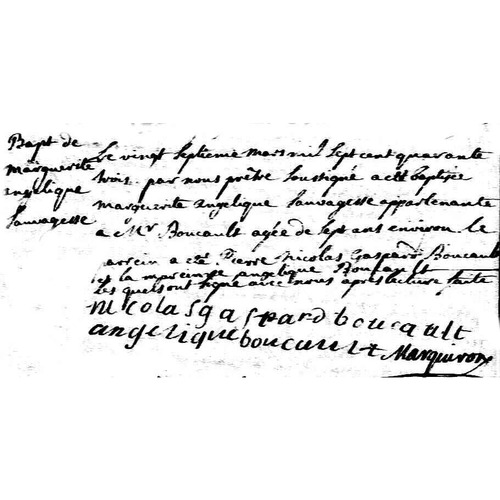 Bapt de
Marguerite
angelique
Sauvagesse
Le vingt Septieme mars mil Sept cent quarante
trois par nous prêtre Soussigné a eté baptisée
marguerite angelique Sauvagesse appartenante
a Mr Boucault agée de Sept ans environ le
parrein a eté Pierre Nicolas Gaspard Boucault
et la mareinne angelique Boucault
Les quels ont signé avec nous apres lecture faite
nicolasgaspardboucault
angeliqueboucault